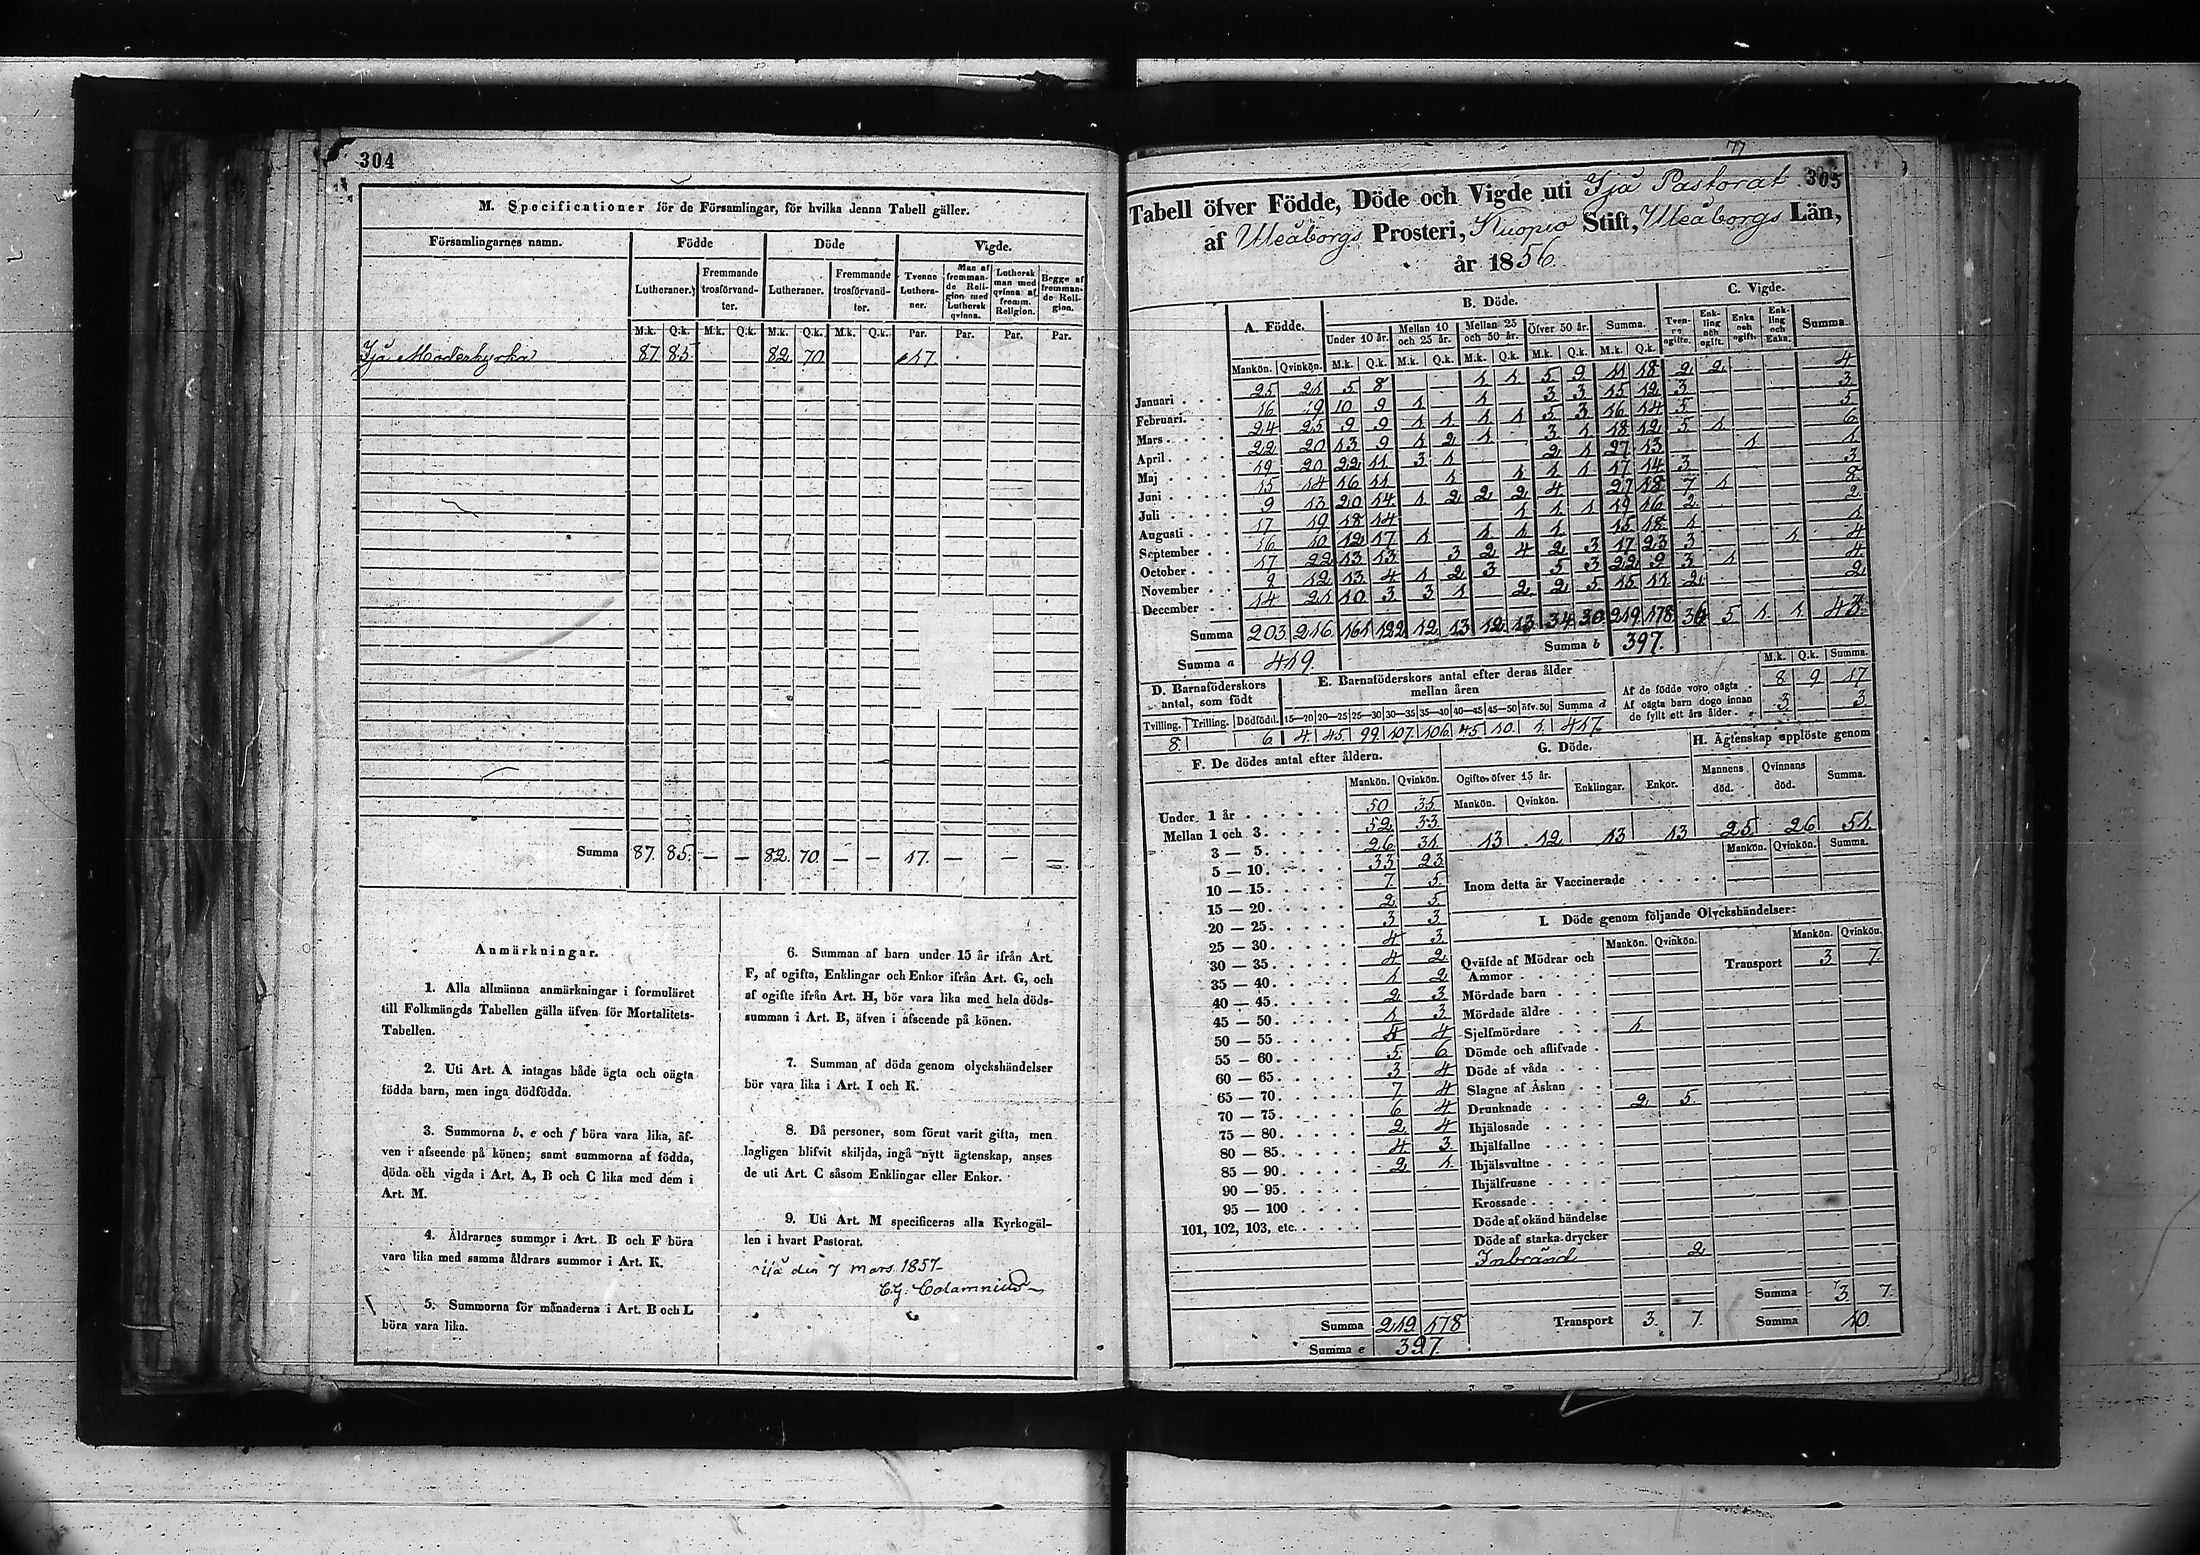 304
M. Specificationer för de Församlingar, för hvilka denna Tabell gäller.
Församlingarnes namn. Födde Döde Vigde.
Lutheraner. Fremmande trosförvandter. Lutheraner. Fremmande trosförvandter. Tvenne Lutheraner. Man af fremmande Religion med Luthersk qvinna. Luthersk man med qvinna af fremm. Religion. Begge af fremmande Religion.
M.k. Q.k. M.k. Q.k. M.k. Q.k. M.k. Q.k. Par. Par. Par. Par.
Ijå Moderkyrka 87 85 82 70 17
Summa 87. 85. — — 82. 70. — — 17. — — —
Anmärkningar.
1. Alla allmänna anmärkningar i formuläret
till Folkmängds Tabellen gälla äfven för Mortalitets-
Tabellen.
2. Uti Art. A intagas både ägta och oägta
födda barn, men inga dödfödda.
3. Summorna b, e och f böra vara lika, äf-
ven i afseende på könen; samt summorna af födda,
döda och vigda i Art. A, B och C lika med dem i
Art. M.
4. Åldrarnes summor i Art. B och F böra
vara lika med samma åldrars summor i Art. K.
5. Summorna för månaderna i Art. B och L
böra vara lika.
6. Summan af barn under 15 år ifrån Art.
F, af ogifta, Enklingar och Enkor ifrån Art. G, och
af ogifte ifrån Art. H, bör vara lika med hela döds-
summan i Art. B, äfven i afseende på könen.
7. Summan af döda genom olyckshändelser
bör vara lika i Art. I och K.
8. Då personer, som förut varit gifta, men
lagligen blifvit skiljda, ingå nytt ägtenskap, anses
de uti Art. C såsom Enklingar eller Enkor.
9. Uti Art. M specificeras alla Kyrkogäl-
len i hvart Pastorat.
Ijå den 7 Mars 1857
C.G. Calamnius
305
Tabell öfver Födde, Döde och Vigde uti Ijå Pastorat
af Uleåborgs Prosteri, Kuopio Stift, Uleåborgs Län,
år 1856
A. Födde. B. Döde. C. Vigde.
Under 10 år. Mellan 10 och 25 år. Mellan 25 och 50 år. Öfver 50 år. Summa. Tvenne ogifte. Enkling och ogift. Enka och ogift. Enkling och Enka. Summa.
Mankön. Qvinkön. M.k. Q.k. M.k. Q.k. M.k. Q.k. M.k. Q.k. M.k. Q.k.
Januari 25 21 5 8 1 1 5 9 11 18 2 2 4
Februari 16 9 10 9 1 1 3 3 15 12 3 3
Mars 24 25 9 9 1 1 1 1 5 3 16 14 5 5
April 22 20 13 9 1 2 1 3 1 18 12 5 1 6
Maj 19 20 22 11 3 1 2 1 27 13 1 1
Juni 15 14 16 11 1 1 1 1 17 14 3 3
Juli 9 13 20 14 1 2 2 2 4 27 18 7 1 8
Augusti 17 19 18 14 1 1 1 19 16 2 2
September 16 10 12 17 1 1 1 1 15 18 1 1
October 17 22 13 13 3 2 4 2 3 17 23 3 1 4
November 9 12 13 4 1 2 3 5 3 22 9 3 1 4
December 14 21 10 3 3 1 2 2 5 15 11 2 2
Summa 203 216 161 122 12 13 12 13 34 30 219 178 36 5 1 1 43
Summa a 419. Summa b 397.
D. Barnaföderskors antal, som födt
E. Barnaföderskors antal efter deras ålder mellan åren
M.k. Q.k. Summa.
Af de födde voro oägta 8 9 17
Af oägta barn dogo innan de fyllt ett års ålder 3 3
Tvilling. Trilling. Dödfödd. 15—20 20—25 25—30 30—35 35—40 40—45 45—50 öfv. 50 Summa d
8 6 4 45 99 107 106 45 10 1 417
F. De dödes antal efter åldern. Mankön. Qvinkön.
Under 1 år 50 35
Mellan 1 och 3 52 33
3 — 5 26 31
5 — 10 33 23
10 — 15 7 5
15 — 20 2 5
20 — 25 3 3
25 — 30 4 3
30 — 35 4 2
35 — 40 1 2
40 — 45 2 3
45 — 50 1 3
50 — 55 4 4
55 — 60 5 6
60 — 65 3 4
65 — 70 7 4
70 — 75 6 4
75 — 80 2 4
80 — 85 4 3
85 — 90 2 1
90 — 95
95 — 100
101, 102, 103, etc.
Summa 219 178
Summa e 397.
G. Döde.
Ogifte öfver 15 år. Enklingar. Enkor.
Mankön. Qvinkön.
13 12 13 13
H. Ägtenskap upplöste genom
Mannens död. Qvinnans död. Summa.
25 26 51
Mankön. Qvinkön. Summa.
Inom detta år Vaccinerade
I. Döde genom följande Olyckshändelser:
Mankön. Qvinkön. Mankön. Qvinkön.
Qväfde af Mödrar och Ammor Transport 3 7
Mördade barn
Mördade äldre
Sjelfmördare 1
Dömde och aflifvade
Döde af våda
Slagne af Åskan
Drunknade 2 5
Ihjälosade
Ihjälfallne
Ihjälsvultne
Ihjälfrusne
Krossade
Döde af okänd händelse
Döde af starka drycker
Inbränd 2
Summa 3 7
Transport 3. 7. Summa 10